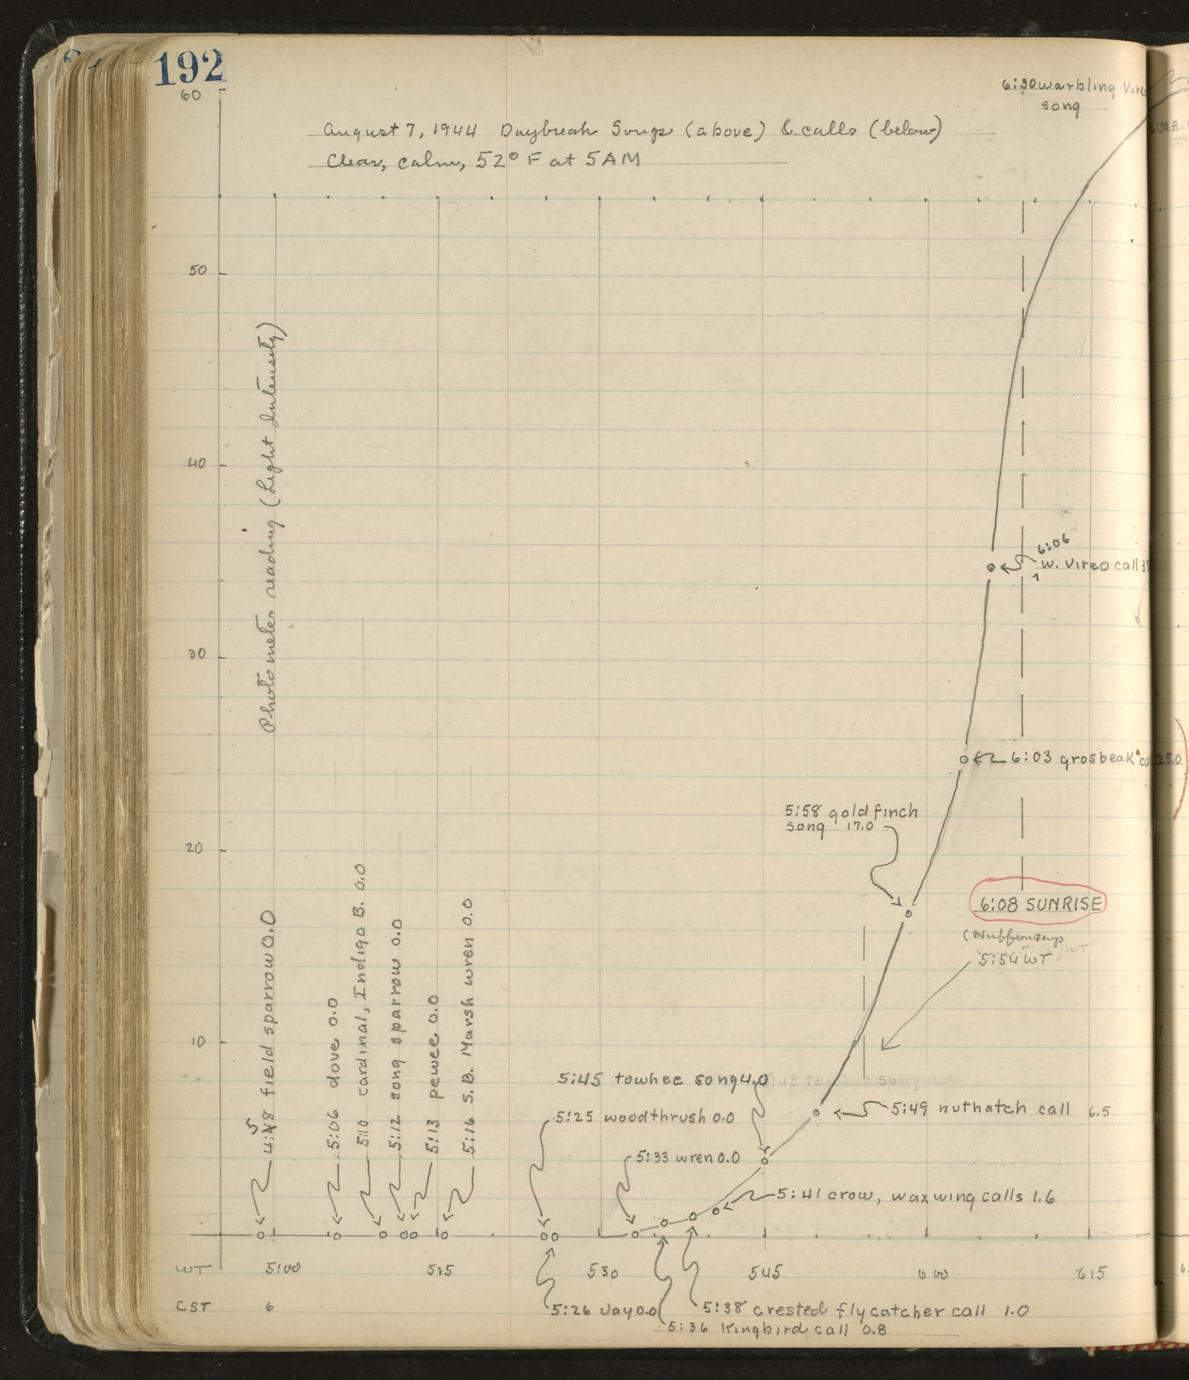 192
60
6:30 warbling Vireo
song
August 7, 1944 Daybreak Songs (above) & calls (below)
Clear, calm, 52° F at 5AM
50
Photometer reading (Light Intensity)
40
6:06
W. Vireo call
30
6:03 grosbeak 25.0
5:58 goldfinch
song 17.0
20
6:08 SUNRISE
5:54 WT
10
4:58 field sparrow 0.0
5:06 dove 0.0
5:10 cardinal, Indigo B. 0.0
5:12 song sparrow 0.0
5:13 pewee 0.0
5:16 S.B. Marsh wren 0.0
5:45 towhee song 4.0
5:25 woodthrush 0.0
5:49 nuthatch call 6.5
5:33 wren 0.0
5:41 crow, waxwing calls 1.6
WT 5:00 515 530 545 600 615
CST 6
5:26 Jay 0.0
5:38 crested flycatcher call 1.0
5:36 Kingbird call 0.8